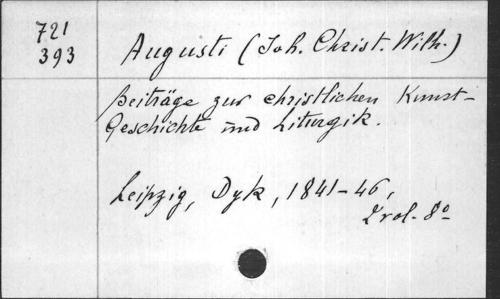 721
393
Augusti (Joh. Christ. Wilh.)
Beiträge zur christlichen Kunst-
Geschichte und Liturgik.
Leipzig, Dyk, 1841-46,
2 vol. 8º